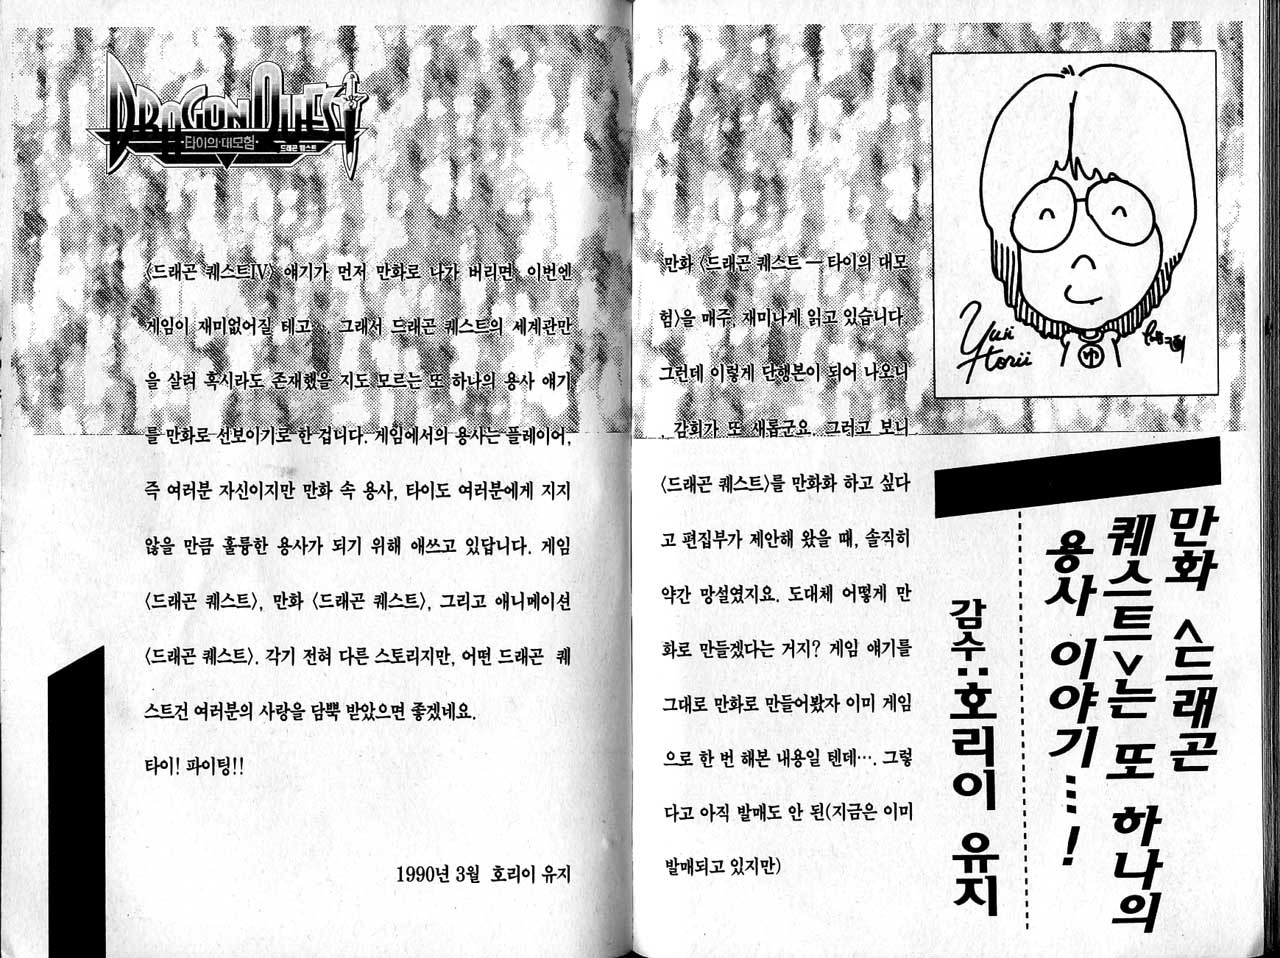 만화 <드래곤
퀘스트>는 또 하나의
용사 이야기…!
감수:호리이 유지
Yuji
Horii
만화 〈드래곤 퀘스트 — 타이의 대모
험〉을 매주, 재미나게 읽고 있습니다.
그런데 이렇게 단행본이 되어 나오니
, 감회가 또 새롭군요. 그러고 보니
〈드래곤 퀘스트〉를 만화화 하고 싶다
고 편집부가 제안해 왔을 때, 솔직히
약간 망설였지요. 도대체 어떻게 만
화로 만들겠다는 거지? 게임 얘기를
그대로 만화로 만들어봤자 이미 게임
으로 한 번 해본 내용일 텐데…. 그렇
다고 아직 발매도 안 된(지금은 이미
발매되고 있지만)
DRAGON QUEST
타이의 대모험
드래곤 퀘스트
〈드래곤 퀘스트Ⅳ〉 얘기가 먼저 만화로 나가 버리면 이번엔
게임이 재미없어질 테고…. 그래서 드래곤 퀘스트의 세계관만
을 살려 혹시라도 존재했을 지도 모르는 또 하나의 용사 얘기
를 만화로 선보이기로 한 겁니다. 게임에서의 용사는 플레이어,
즉 여러분 자신이지만 만화 속 용사, 타이도 여러분에게 지지
않을 만큼 훌륭한 용사가 되기 위해 애쓰고 있답니다. 게임
〈드래곤 퀘스트〉, 만화 〈드래곤 퀘스트〉, 그리고 애니메이션
〈드래곤 퀘스트〉. 각기 전혀 다른 스토리지만, 어떤 드래곤 퀘
스트건 여러분의 사랑을 담뿍 받았으면 좋겠네요.
타이! 파이팅!!
1990년 3월 호리이 유지